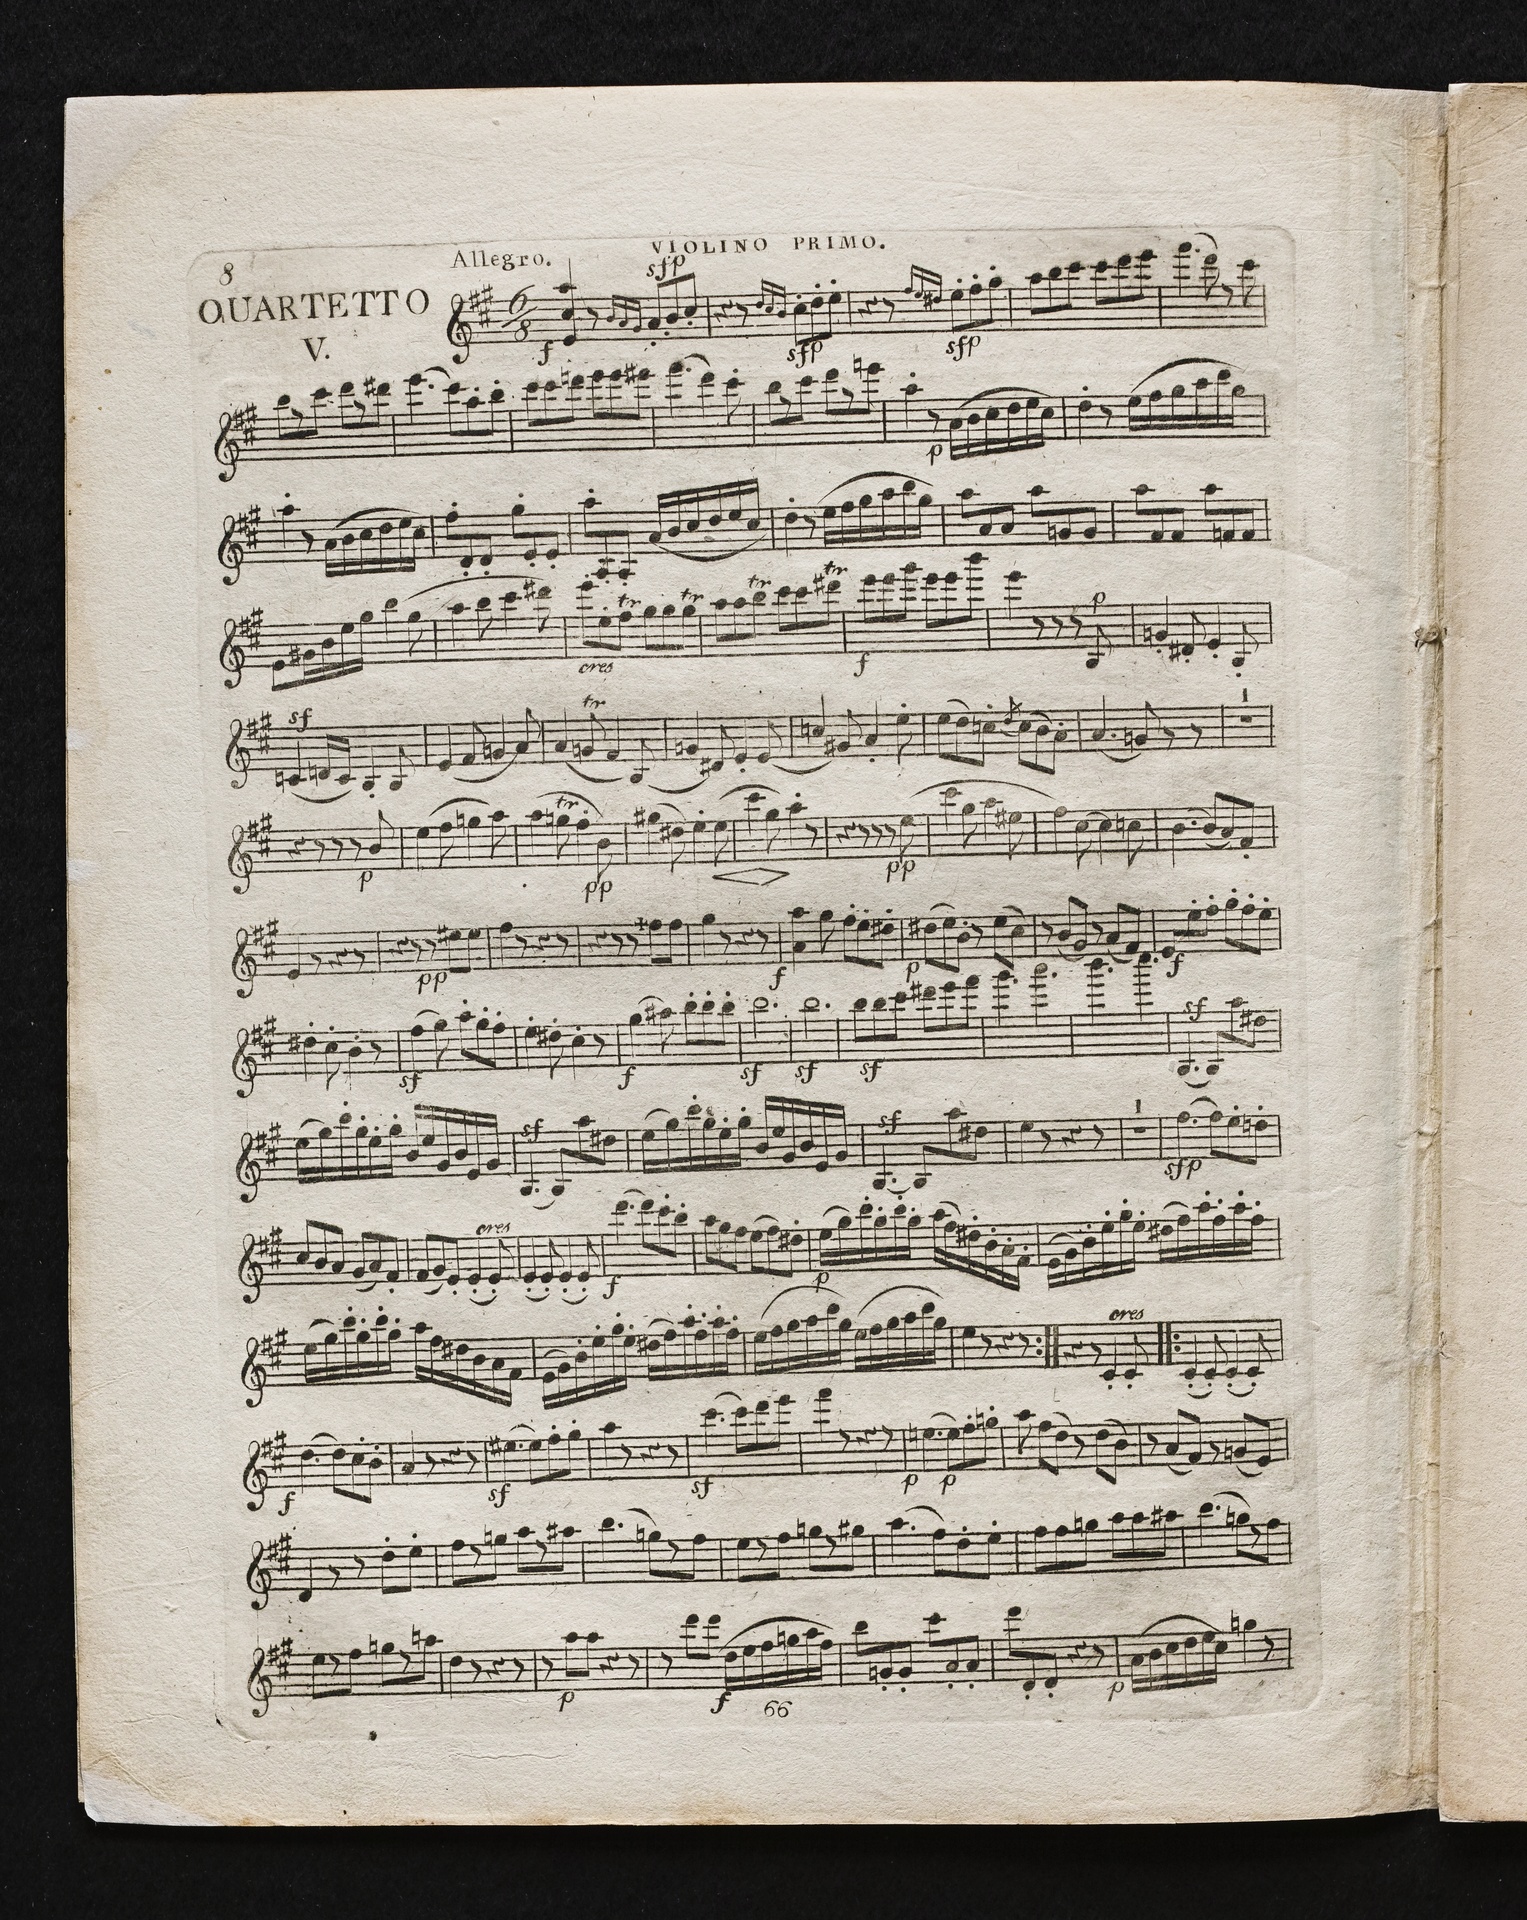 8
VIOLINO PRIMO.
QUARTETTO
V.
Allegro.
sfp
6
8
f
sfp
sfp
p
tr
tr
tr
tr
p
cres
f
sf
tr
1
tr
p
pp
pp
pp
f
p
f
sf
sf
f
sf
sf
sf
sf
sf
1
sfp
cres
f
p
cres
f
sf
sf
p
p
p
f
p
66